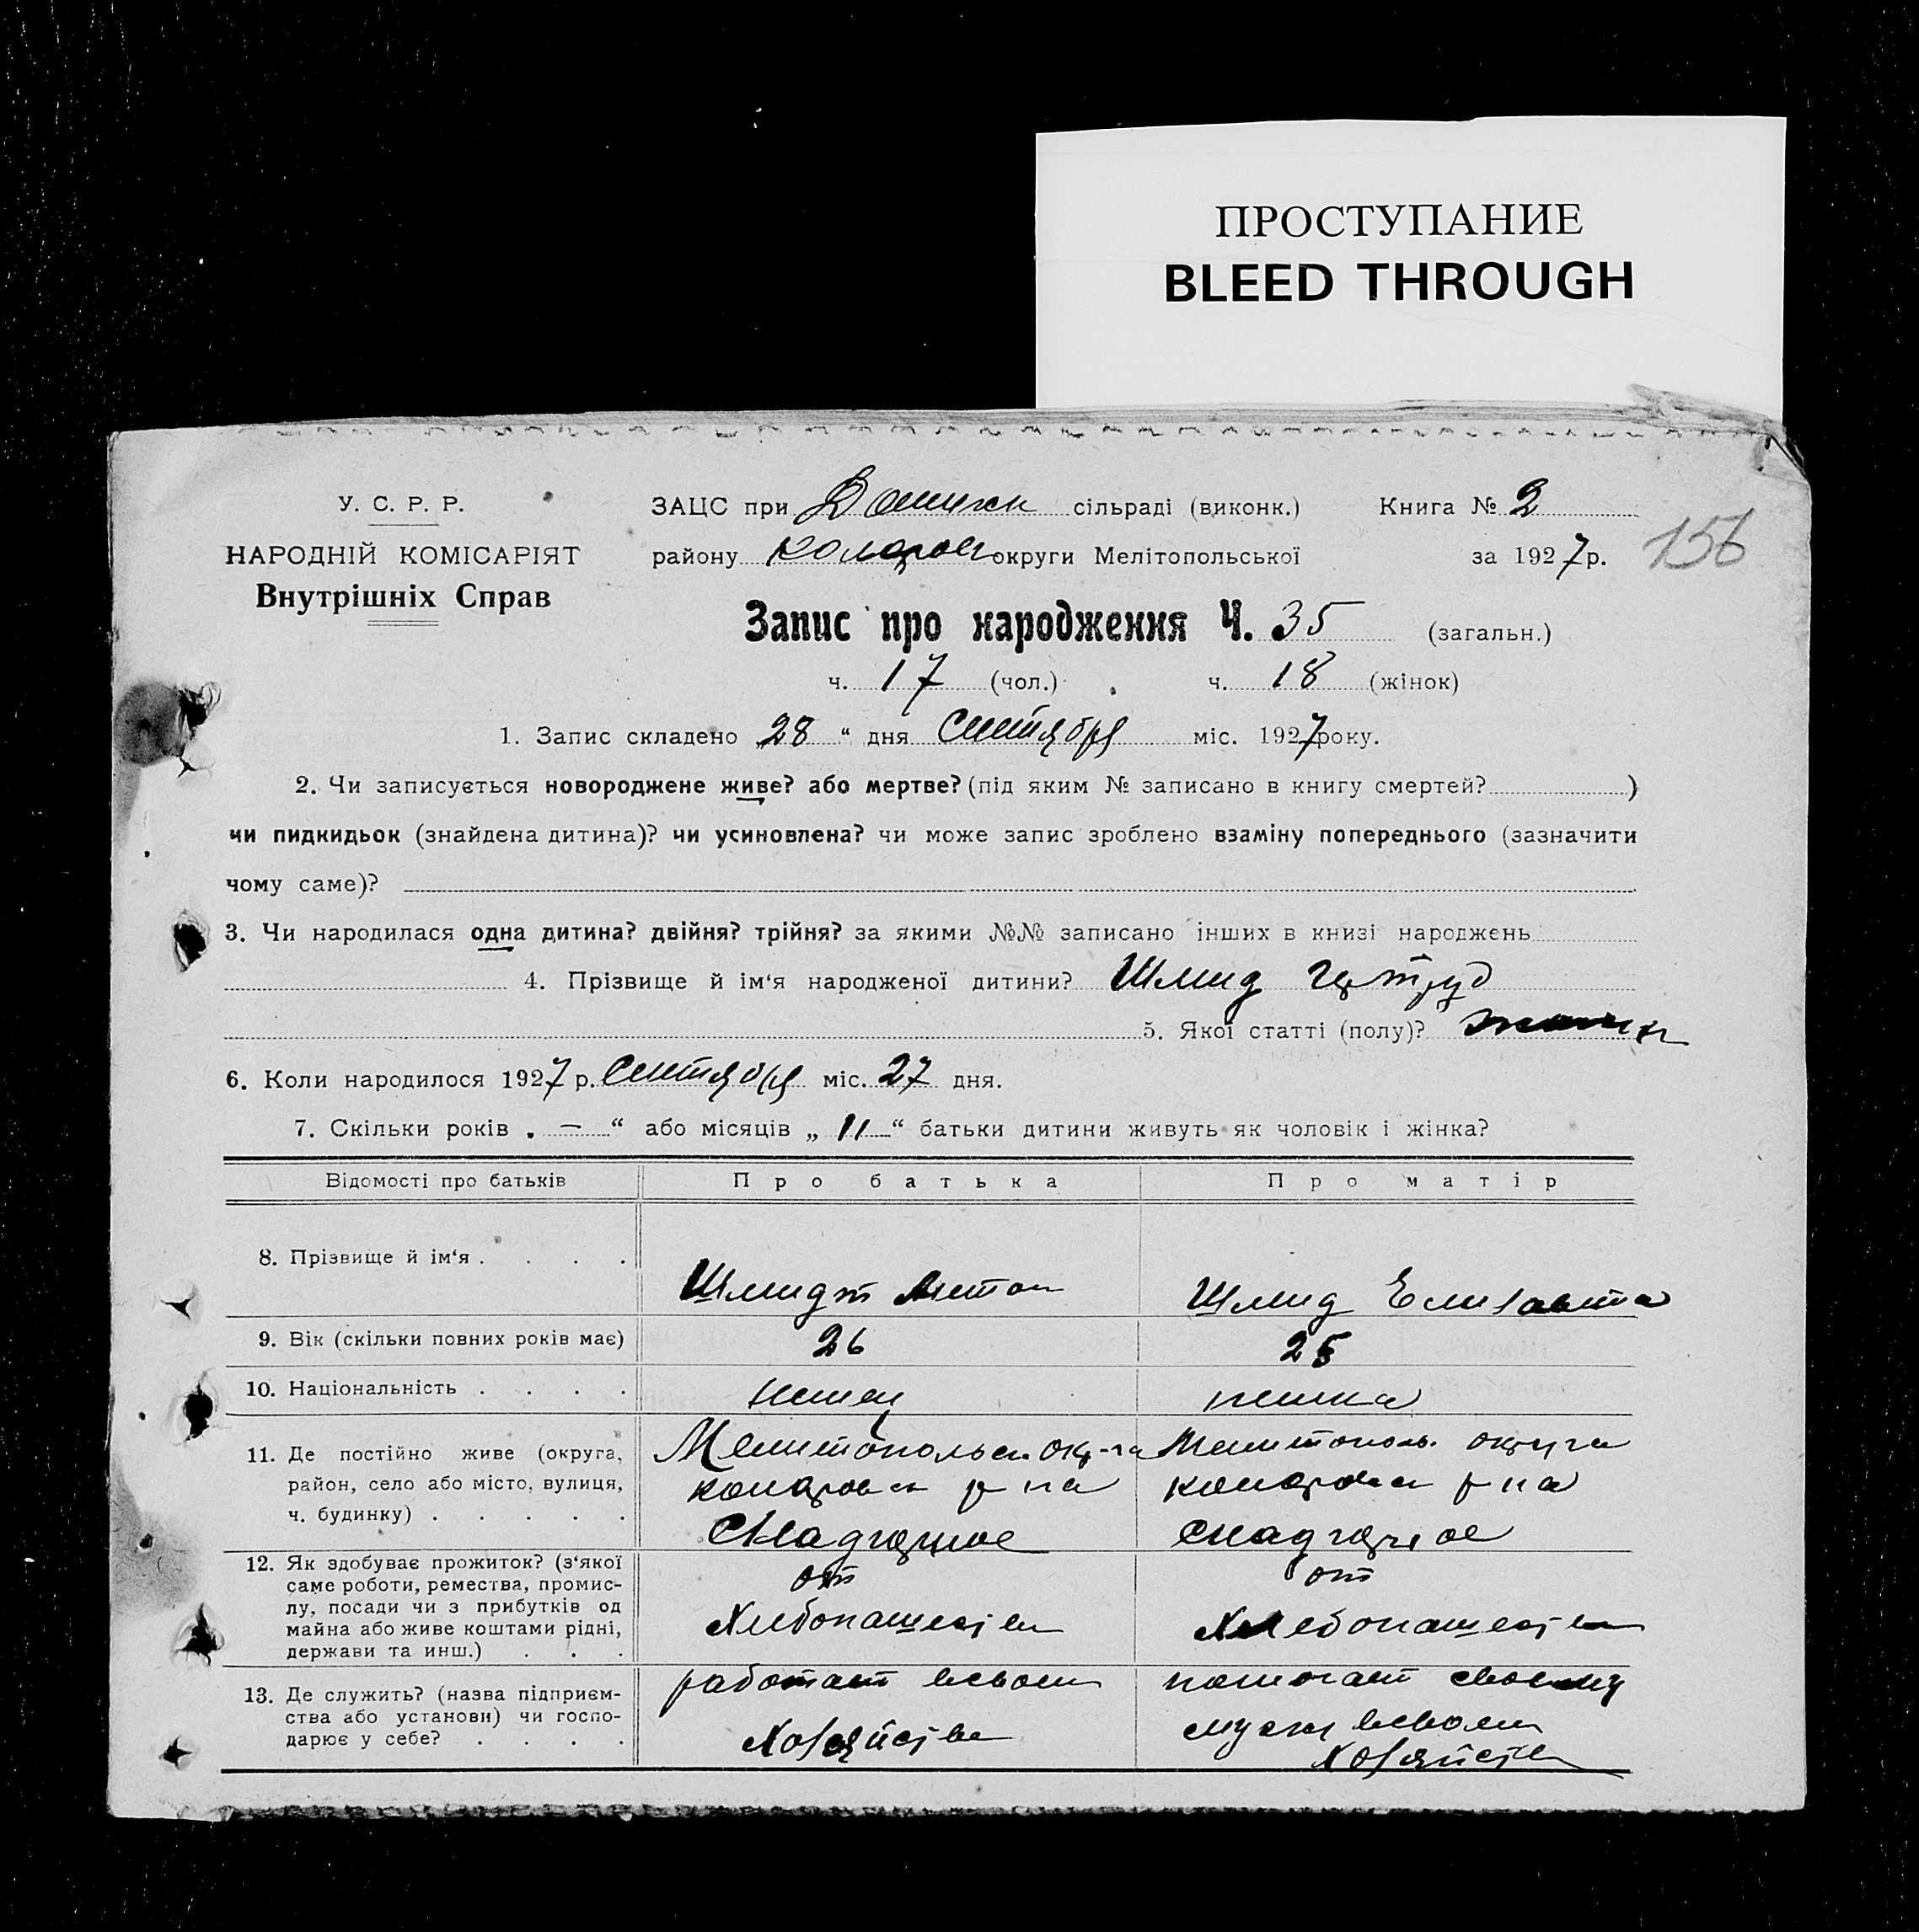 ПРОСТУПАНИЕ
BLEED THROUGH
У. С. Р. Р.
НАРОДНІЙ КОМІСАРІЯТ
Внутрішніх Справ
ЗАЦС при сільраді (виконк.) Книга № 2
району округи Мелітопольської за 1927 р.
156
Запис про народження Ч. 35 (загальн.)
ч. 17 (чол.) ч. 18 (жінок)
1. Запис складено „28“ дня Сентября міс. 1927 року.
2. Чи записується новороджене живе? або мертве? (під яким № записано в книгу смертей? )
чи пидкидьок (знайдена дитина)? чи усиновлена? чи може запис зроблено взаміну попереднього (зазначити
чому саме)?
3. Чи народилася одна дитина? двійня? трійня? за якими №№ записано інших в книзі народжень
4. Прізвище й ім‘я народженої дитини? Шмид
5. Якої статті (полу)?
6. Коли народилося 1927 р. Сентября міс. 27 дня.
7. Скільки років „ — “ або місяців „ 11 “ батьки дитини живуть як чоловік і жінка?
Відомості про батьків Про батька Про матір
8. Прізвище й ім‘я . . . . Шмидт Антон Шмид Елизавета
9. Вік (скільки повних років має) 26 25
10. Національність . . . . немец немка
11. Де постійно живе (округа, район, село або місто, вулиця, ч. будинку) . . . . .
Мелитопольск. окр-га Мелитополь. округа
р на р на
12. Як здобуває прожиток? (з‘якої саме роботи, ремества, промис-лу, посади чи з прибутків од майна або живе коштами рідні, держави та инш.) . . .
от от
Хлебопашества Хлебопашества
13. Де служить? (назва підприєм-ства або установи) чи госпо-дарює у себе? . . . .
работает в своем помогает своему
Хозяйстве мужу в своем
Хозяйстве